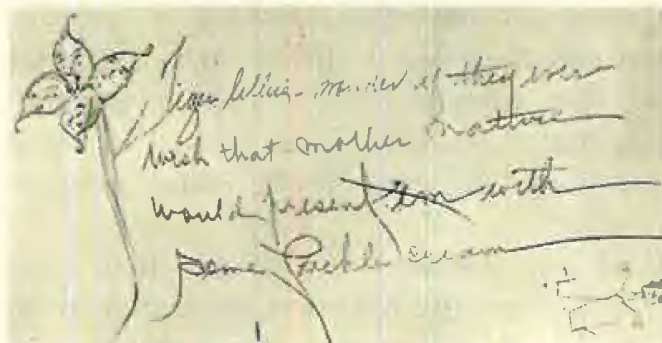 Tiger lilies - wonder if they ever
wish that mother nature
would present 'em with
some freckle cream